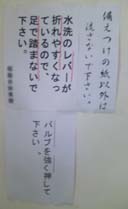 備えつけの紙以外は
流さないで下さい。
水洗のレバーが
折れやすくなっ
ているので、
足で踏まないで
下さい。
バルブを強く押して
下さい。